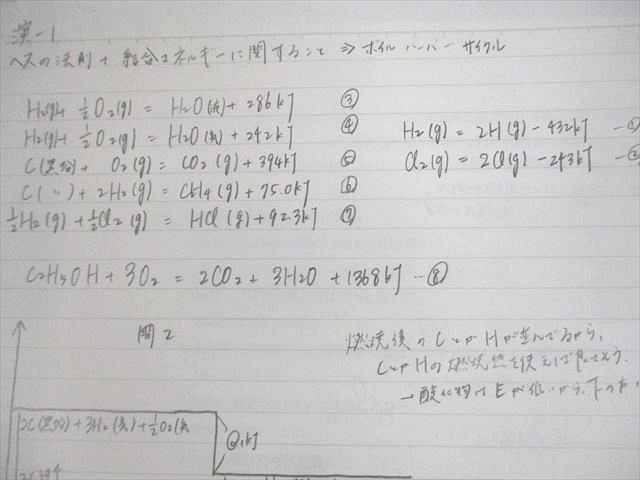 演-1
ヘスの法則 + 結合エネルギーに関すること ⇒ ボルン ハーバー サイクル
H2(g)+ 1/2O2(g) = H2O(液)+ 286kJ ③
H2(g)+ 1/2O2(g) = H2O(気)+ 242kJ ④
C(黒鉛)+ O2(g) = CO2(g)+394kJ ⑤
C( 〃 )+ 2H2(g) = CH4(g)+75.0kJ ⑥
1/2H2(g)+1/2Cl2(g) = HCl(g)+92.3kJ ⑦
H2(g) = 2H(g)-432kJ -①
Cl2(g) = 2Cl(g)-243kJ -②
C2H5OH + 3O2 = 2CO2 + 3H2O +1368kJ -⑧
問2
燃焼後の CやHが並んでるから、
CやHの燃焼熱を使えば
→酸化物はEが低いから、下の方
2C(黒鉛)+3H2(気)+1/2O2(気
Q1kJ
2×394